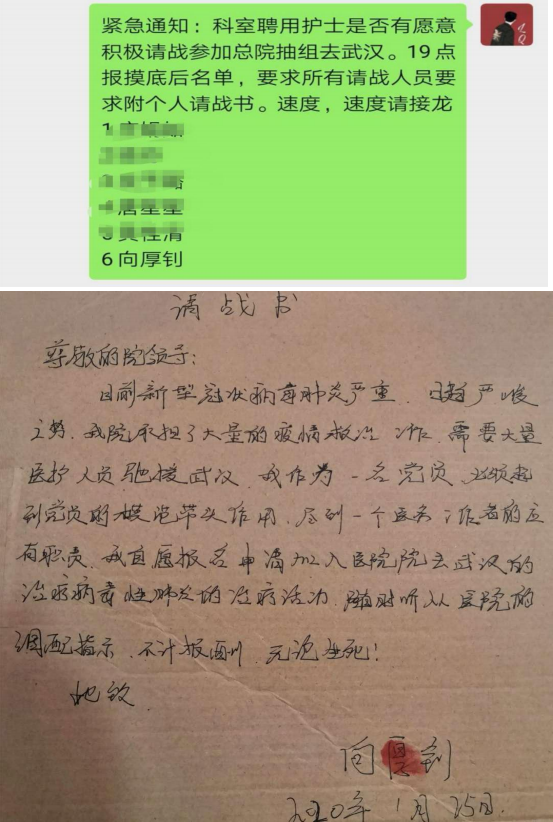 紧急通知：科室聘用护士是否有愿意
积极请战参加总院抽组去武汉。19点
报摸底后名单，要求所有请战人员要
求附个人请战书。速度，速度请接龙
1
3
4 唐星星
5 黄性清
6 向厚钊
请战书
尊敬的院领导：
目前新型冠状病毒肺炎严重 严峻
我院承担了大量的疫情救治工作 需要大量
医护人员驰援武汉 我作为一名党员 必须起
到党员的模范带头作用 尽到一个医务工作者的应
有职责 我自愿报名申请加入医院院去武汉的
治疗病毒性肺炎的治疗活动 随时听从医院的
调配指示 不计报酬 无论生死！
此致
向厚钊
2020年1月25日